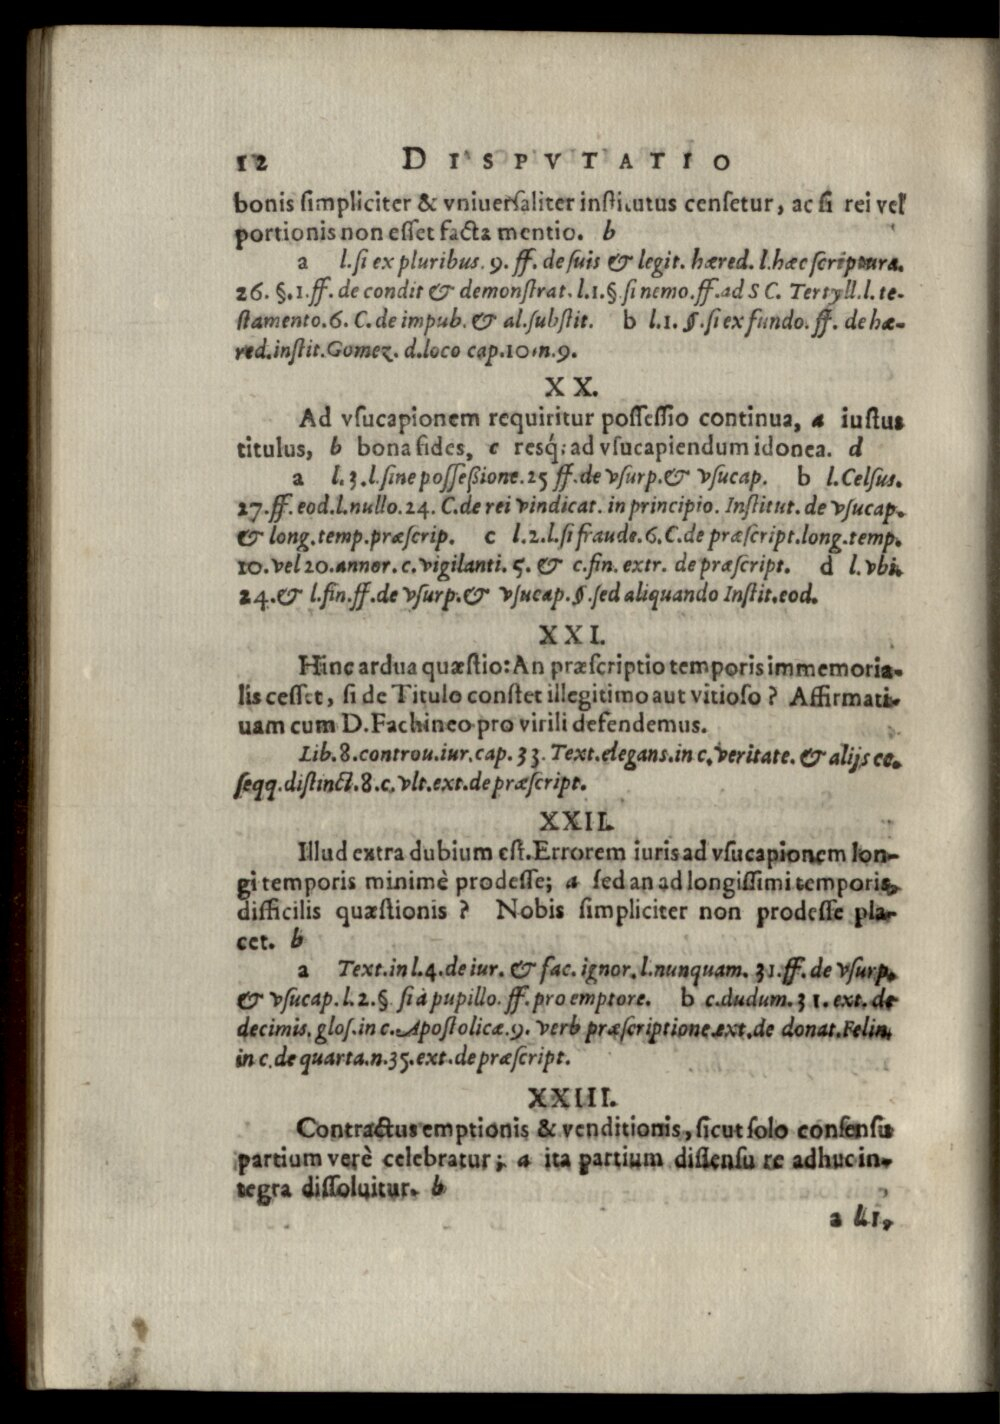 12 DISPVTATIO
bonis ſimpliciter & vniuerſaliter inſtitutus cenſetur, ac ſi rei vel
portionis non eſſet facta mentio. b
a l.ſi ex pluribus. 9. ff. de ſuis & legit. hæred. l.hæc ſcriptura.
26. §.1.ff. de condit & demonſtrat. l.1.§.ſi nemo.ff.ad S C. Tertyll.l. te-
ſtamento.6. C.de impub. & al.ſubſtit. b l.1. §.ſi ex fundo. ff. de hæ-
red.inſtit.Gomez. d.loco cap.10.n.9.
XX.
Ad vſucapionem requiritur poſſeſſio continua, a iuſtus
titulus, b bona fides, c resq́; ad vſucapiendum idonea. d
a l.3.l.ſine poſſeßione.25 ff.de vſurp.& vſucap. b l.Celſus.
27.ff.eod.l.nullo.24. C.de rei vindicat. in principio. Inſtitut. de vſucap.
& long.temp.præſcrip. c l.2.l.ſi fraude.6.C.de præſcript.long.temp.
10.vel 20.annor.c.vigilanti. 5. & c.fin. extr. de præſcript. d l.vbi.
24.& l.fin.ff.de vſurp.& vſucap.§.ſed aliquando Inſtit.eod.
XXI.
Hinc ardua quæſtio: An præſcriptio temporis immemoria-
lis ceſſet, ſi de Titulo conſtet illegitimo aut vitioſo? Affirmati-
uam cum D. Fachineo pro virili defendemus.
Lib.8.controu.iur.cap.33. Text.elegans.in c.veritate. & alijs cc.
ſeqq.diſtinct.8.c.vlt.ext.de præſcript.
XXII.
Illud extra dubium eſt. Errorem iuris ad vſucapionem lon-
gi temporis minimè prodeſſe; a ſed an ad longiſſimi temporis,
difficilis quæſtionis? Nobis ſimpliciter non prodeſſe pla-
cet. b
a Text.in l.4.de iur. & fac. ignor.l.nunquam. 31.ff. de vſurp.
& vſucap.l.2.§ ſi à pupillo. ff.pro emptore. b c.dudum.31. ext. de
decimis.gloſ.in c.Apoſtolicæ.9. verb præſcriptione.ext.de donat.Felin.
in c.de quarta.n.35.ext.de præſcript.
XXIII.
Contractus emptionis & venditionis, ſicut ſolo conſenſu
partium verè celebratur; a ita partium diſſenſu re adhuc in-
tegra diſſoluitur. b
a l.1,